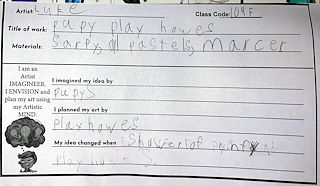 Artist: Luke Class Code: 104F
Title of work: pupy play howes
Materials: Sarpy, oil pastels, marcer
I am an
Artist
IMAGINEER.
I ENVISION and
plan my art using
my Artistic
MIND.
I imagined my idea by
pupys
I planned my art by
playhowes
My idea changed when: Shower of paint
play howes.